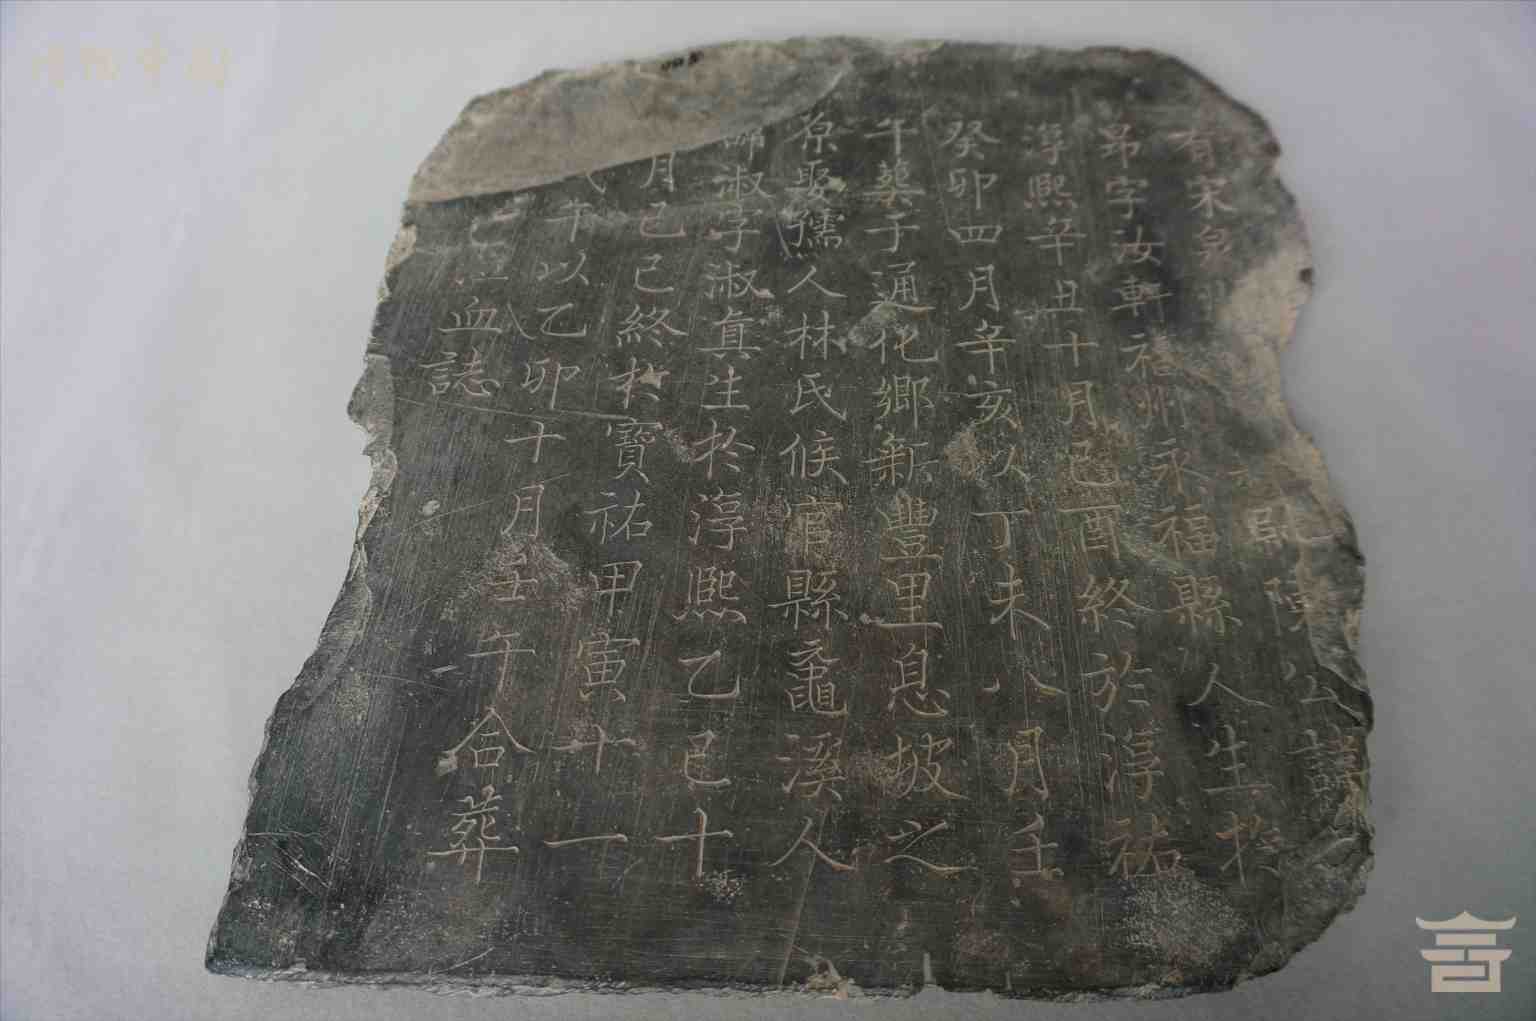 有宋泉
郎陳公諱
昴字汝軒福州永福縣人生於
淳熙辛丑十月己酉終於淳祐
癸卯四月辛亥以丁未八月壬
午葬于通化鄉新豐里息坡之
原娶孺人林氏候官縣黽溪人
淑字淑真生於淳熙乙巳十
月己巳終於寶祐甲寅十一
午以乙卯十月壬午合葬
血誌